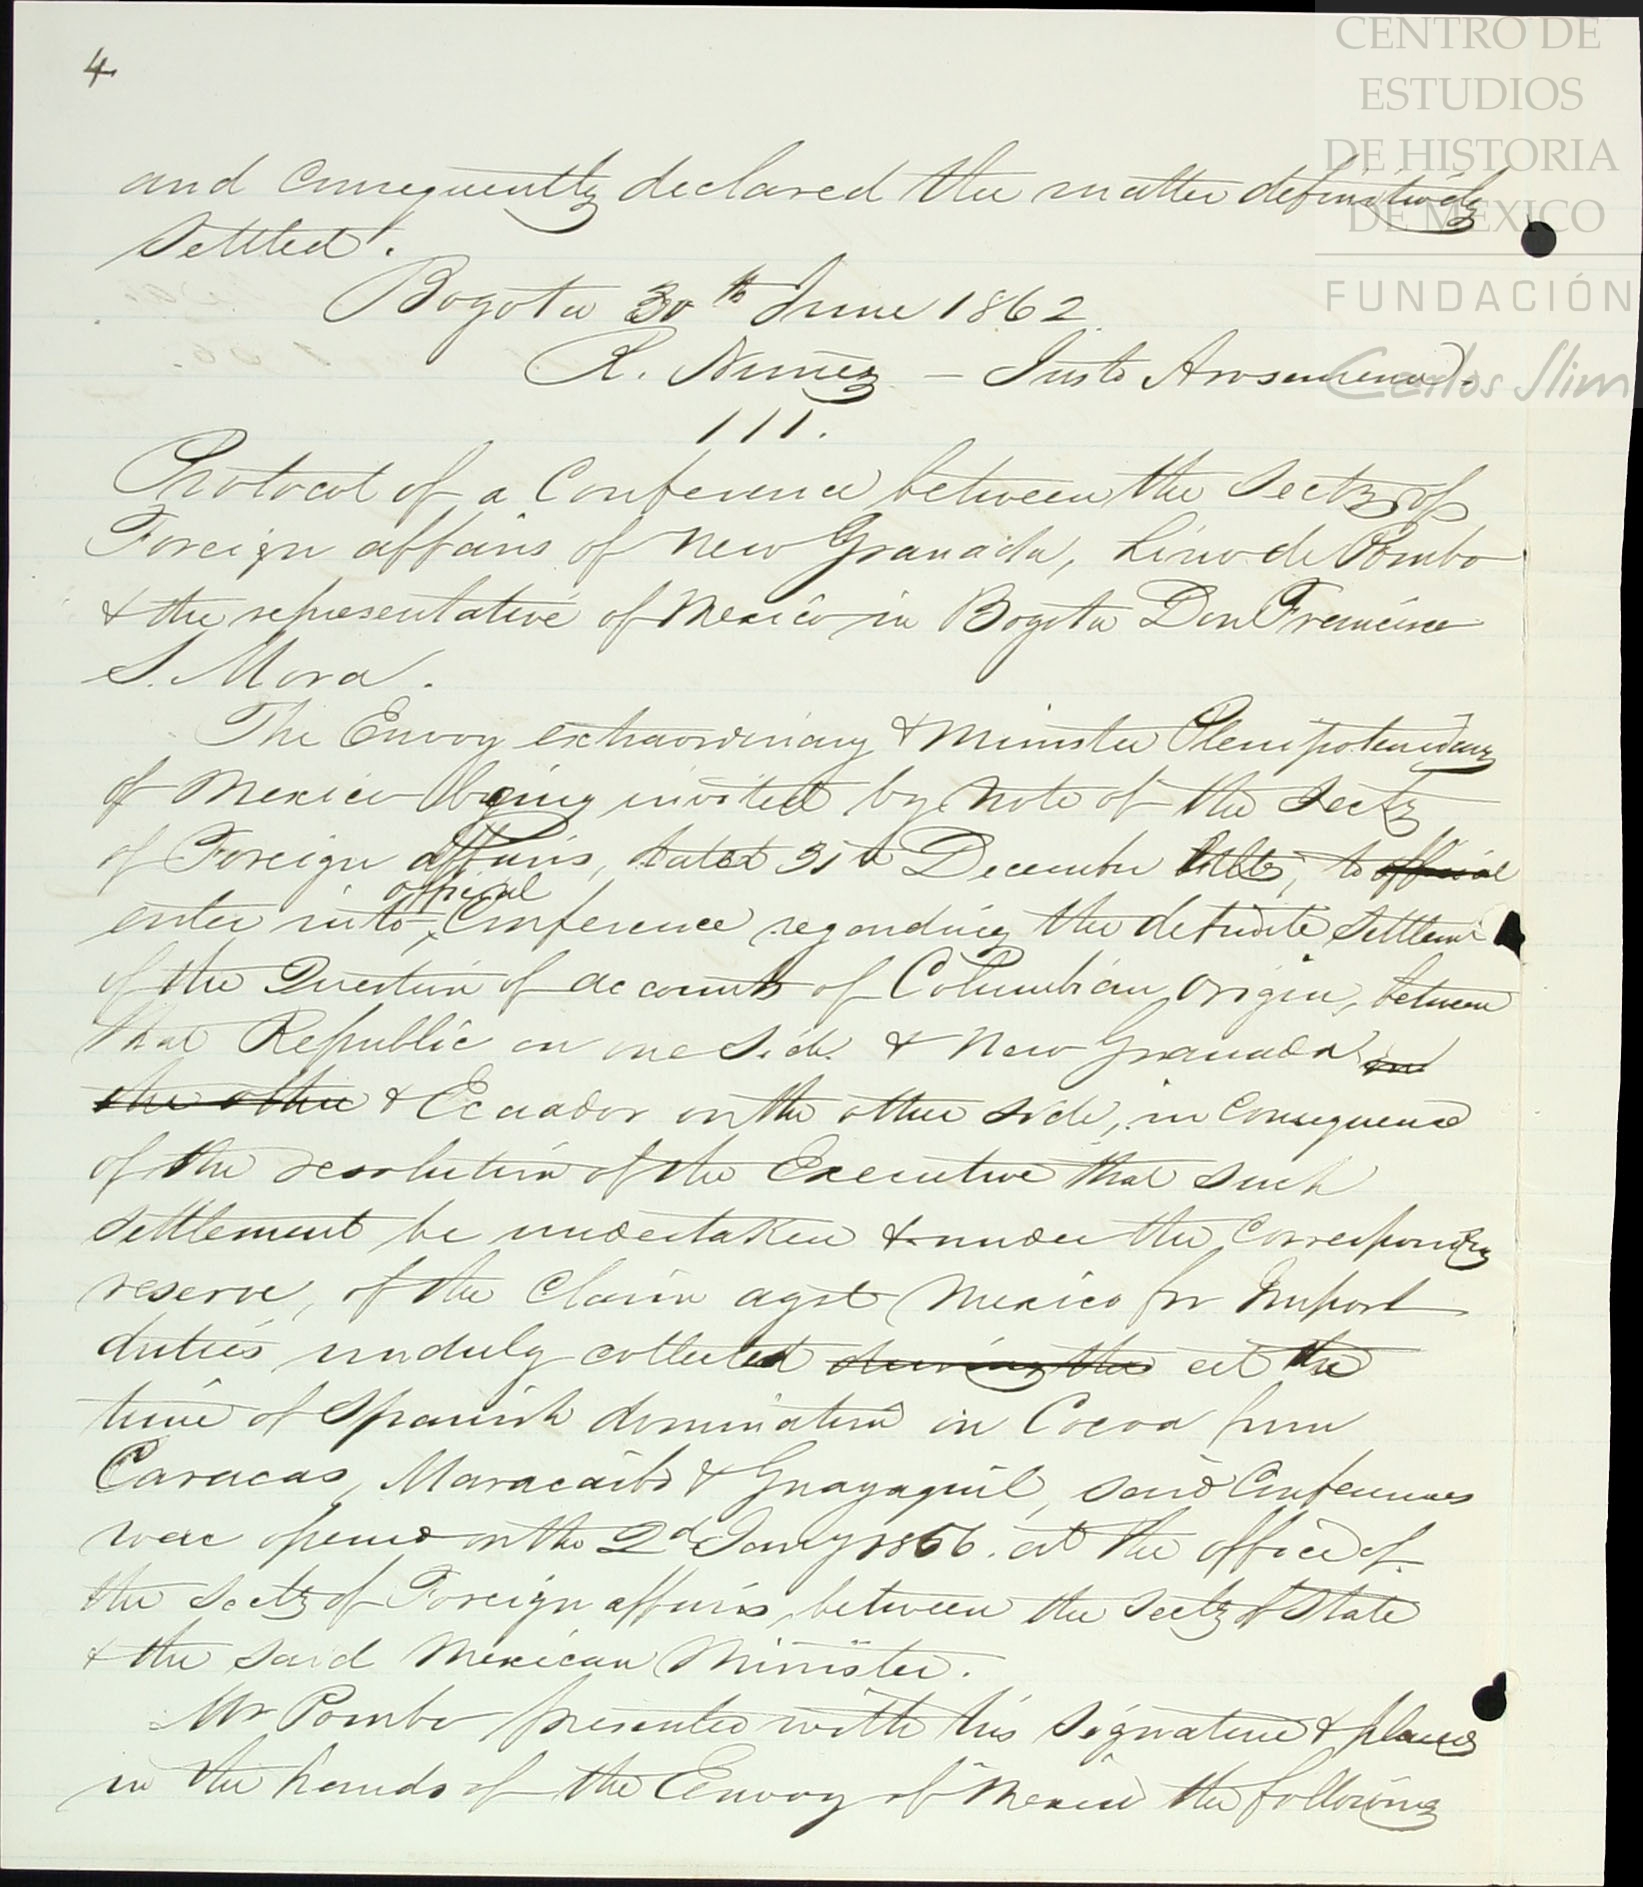 4
CENTRO DE
ESTUDIOS
DE HISTORIA
DE MÉXICO
FUNDACIÓN
Carlos Slim
and consequently declared the matter definitively
settled.
Bogota 30th June 1862.
R. Nuñez — Justo Arosemena.
111.
Protocol of a Conference between the Secty of
Foreign affairs of New Granada, Lino de Pombo
& the representative of Mexico in Bogota Don Francisco
S. Mora.
The Envoy extraordinary & Minister Plenipotentiary
of Mexico being invited by Note of the Secty
of Foreign Affairs, dated 31st December ulto, to official
enter into official Conference regarding the definite settlemt
of the Question of accounts of Columbian origin, between
that Republic on one side & New Granada on
the other & Ecuador on the other side, in consequence
of the resolution of the Executive that such
settlement be undertaken & under the corresponding
reserve, of the claim agst Mexico for Import
duties unduly collected during the at the
time of Spanish domination on Cocoa from
Caracas, Maracaibo & Guayaquil, said Conferences
were opened on the 2d Jany 1856. at the office of
the Secty of Foreign affairs, between the Secty of State
& the said Mexican Minister.
Mr Pombo presented with his signature & placed
in the hands of the Envoy of Mexico the following